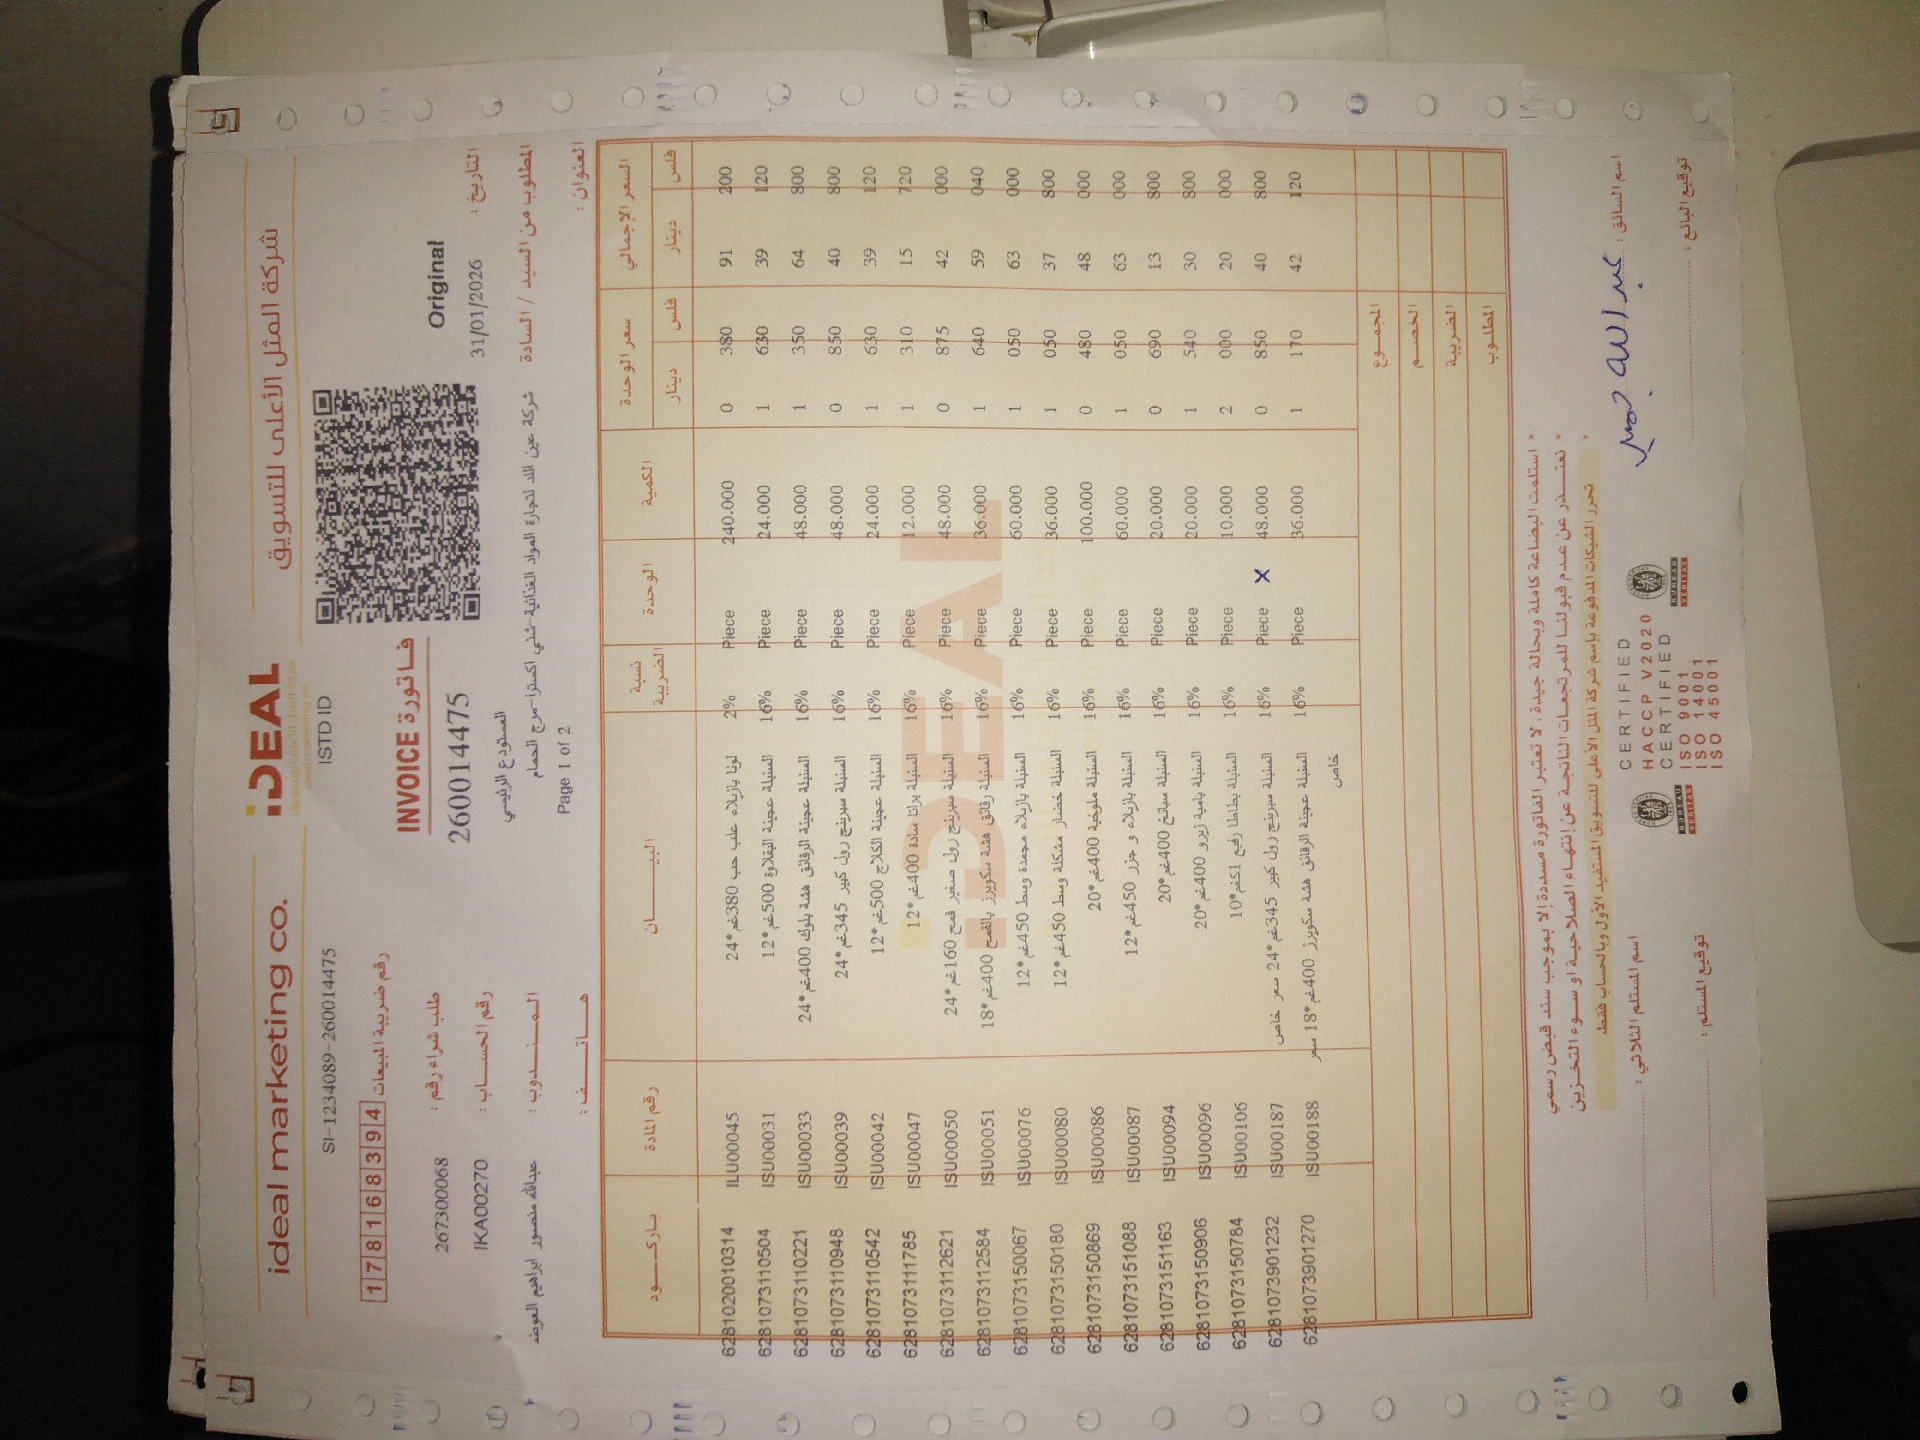 ideal marketing co.
iDEAL
شركة المثل الأعلى للتسويق
SI-1234089-260014475
ISTD ID
رقم ضريبة المبيعات 178168394
INVOICE فاتورة
Original
طلب شراء رقم : 267300068
260014475
التاريخ : 31/01/2026
رقم الحساب : IKA00270
المستودع الرئيسي
المطلوب من السيد / السادة شركة عين اللد لتجارة المواد الغذائية-شلبي اكسترا-مرج الحمام
المندوب : عبدالله منصور ابراهيم العوضد
هاتف :
Page 1 of 2
العنوان :
باركود رقم المادة البيان نسبة الضريبة الوحدة الكمية سعر الوحدة السعر الإجمالي
دينار فلس دينار فلس
6281020010314 ILU00045 لونا بازيلاء علب حب 380غم*24 2% Piece 240.000 0 380 91 200
6281073110504 ISU00031 السنبلة عجينة البقلاوة 500غم*12 16% Piece 24.000 1 630 39 120
6281073110221 ISU00033 السنبلة عجينة الرقائق هشة بلوك 400غم*24 16% Piece 48.000 1 350 64 800
6281073110948 ISU00039 السنبلة سبرينج رول كبير 345غم*24 16% Piece 48.000 0 850 40 800
6281073110542 ISU00042 السنبلة عجينة الكلاج 500غم*12 16% Piece 24.000 1 630 39 120
6281073111785 ISU00047 السنبلة براتا سادة 400غم*12 16% Piece 12.000 1 310 15 720
6281073112621 ISU00050 السنبلة سبرينج رول صغير قمح 160غم*24 16% Piece 48.000 0 875 42 000
6281073112584 ISU00051 السنبلة رقائق هشة سكويرز بالقمح 400غم*18 16% Piece 36.000 1 640 59 040
6281073150067 ISU00076 السنبلة بازيلاء مجمدة وسط 450غم*12 16% Piece 60.000 1 050 63 000
6281073150180 ISU00080 السنبلة خضار مشكلة وسط 450غم*12 16% Piece 36.000 1 050 37 800
6281073150869 ISU00086 السنبلة ملوخية 400غم*20 16% Piece 100.000 0 480 48 000
6281073151088 ISU00087 السنبلة بازيلاء و جزر 450غم*12 16% Piece 60.000 1 050 63 000
6281073151163 ISU00094 السنبلة سبانخ 400غم*20 16% Piece 20.000 0 690 13 800
6281073150906 ISU00096 السنبلة بامية زيرو 400غم*20 16% Piece 20.000 1 540 30 800
6281073150784 ISU00106 السنبلة بطاطا رفيع 1كغم*10 16% Piece 10.000 2 000 20 000
6281073901232 ISU00187 السنبلة سبرينج رول كبير 345غم*24 سعر خاص 16% Piece x 48.000 0 850 40 800
6281073901270 ISU00188 السنبلة عجينة الرقائق هشة سكويرز 400غم*18 سعر 16% Piece 36.000 1 170 42 120
خاص
المجموع
الخصم
الضريبة
المطلوب
* استلمت البضاعة كاملة وبحالة جيدة ، لا تعتبر الفاتورة مسددة إلا بموجب سند قبض رسمي
* نعتذر عن عدم قبولنا للمرتجعات الناتجة عن إنتهاء الصلاحية او سوء التخزين
* تحرر الشيكات المدفوعة باسم شركة المثل الأعلى للتسويق المستفيد الأول وبالحساب فقط
اسم المستلم الثلاثي :
توقيع المستلم :
CERTIFIED
HACCP V2020
CERTIFIED
ISO 9001
ISO 14001
ISO 45001
BUREAU VERITAS
BUREAU VERITAS
اسم السائق : عبد الله
توقيع البائع :